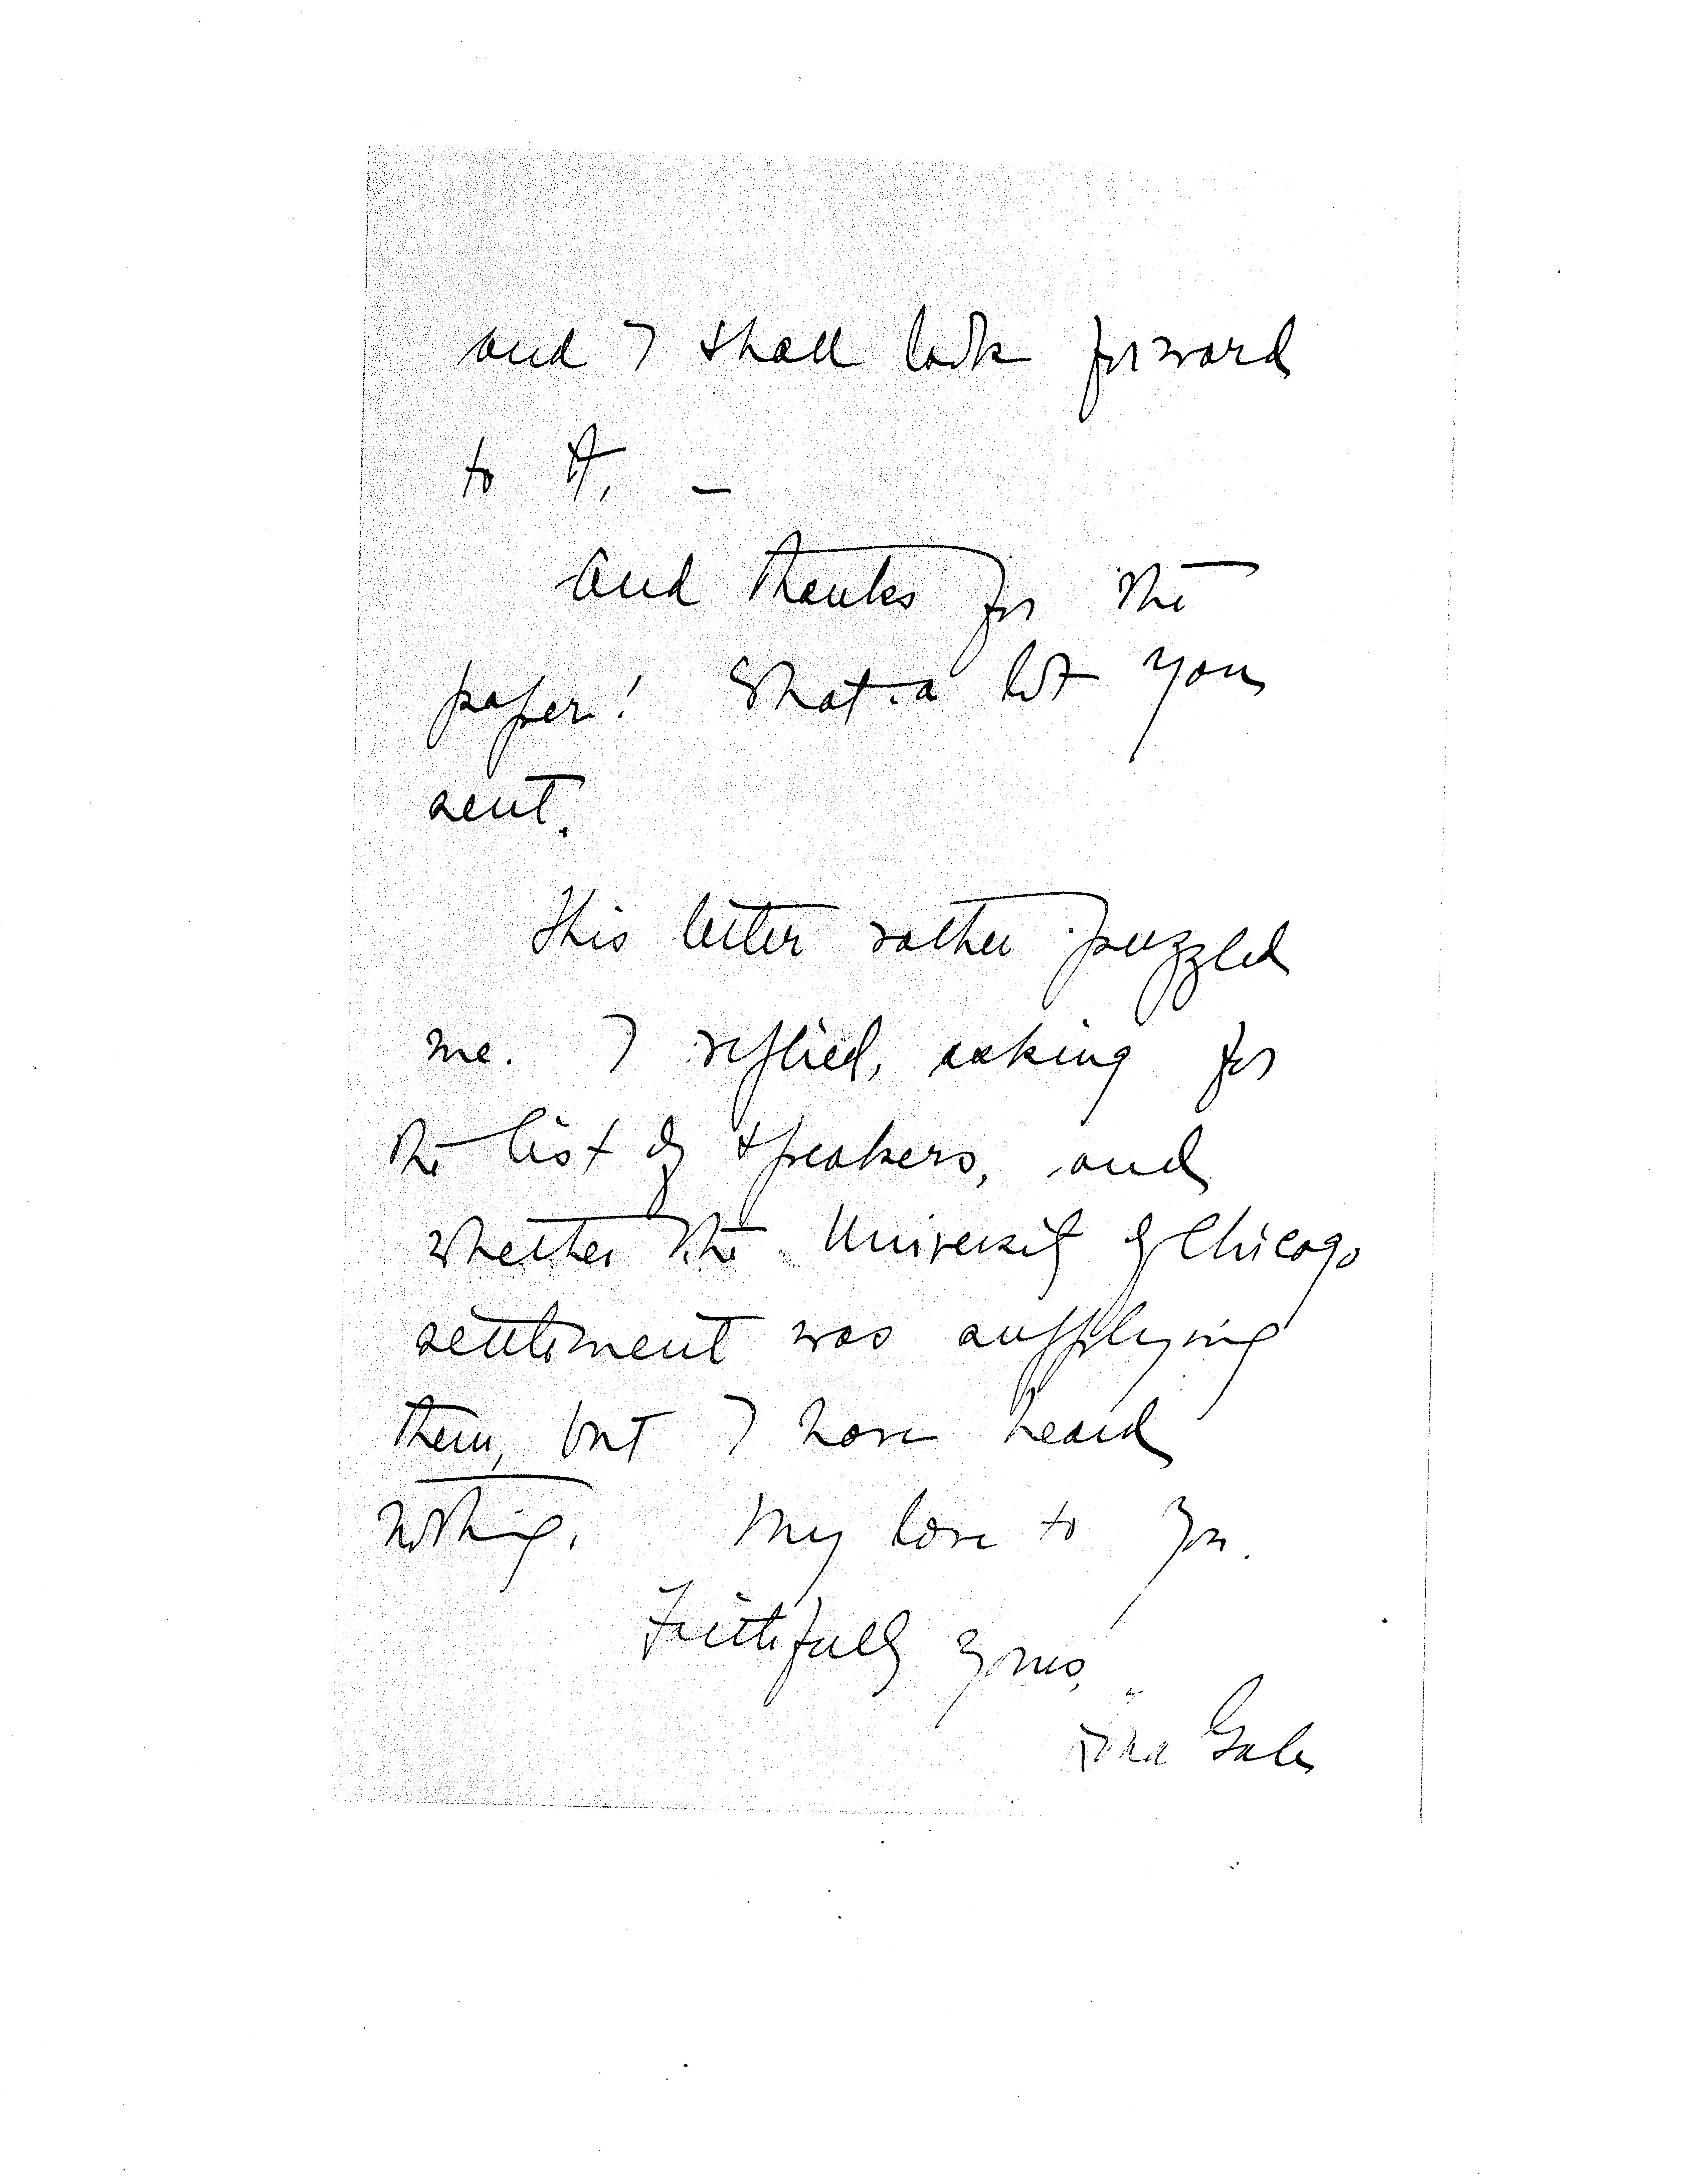 and I shall look forward
to it, –
And thanks for the
paper! What a lot you
sent.
This letter rather puzzled
me. I replied, asking for
the list of speakers, and
whether the University of Chicago
settlement was supplying
them, but I have heard
nothing. My love to you.
Faithfully yours,
Zona Gale